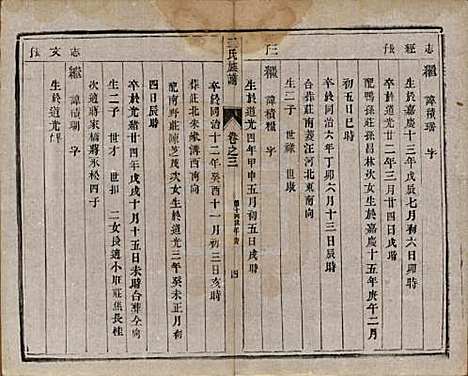 志經長
繼 諱積瑞 字
生於嘉慶十三年戊辰七月初六日卯時
卒於道光廿二年三月廿四日戌時
配鴨孫莊孫昌林次女生於嘉慶十五年庚午二月
初五日巳時
卒於同治六年丁卯六月十三日辰時
合葬莊南菱汪河北東南向
生二子 世祿 世康
三
繼 諱積糧 字
生於道光四年甲申五月初五日戌時
氏族譜
卷之三
四
卒於同治十二年癸酉十一月初三日亥時
葬莊北朱家溝西南向
配南野莊陳芝茂次女生於道光三年癸未正月初
四日辰時
卒於光緒廿四年戊戌十月十五日未時合葬仝向
生二子 世才 世扣 二女長適小厫莊焦長桂
次適蔣家橋蔣永松四子
志文長
繼 諱積瑚 字
生於道光